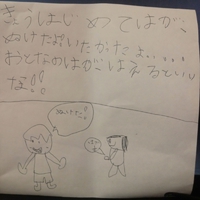 きょうはじめてはが、
ぬけたおいたかたよ.....
おとなのはがはえるといい
な!!
ぬけたよ!